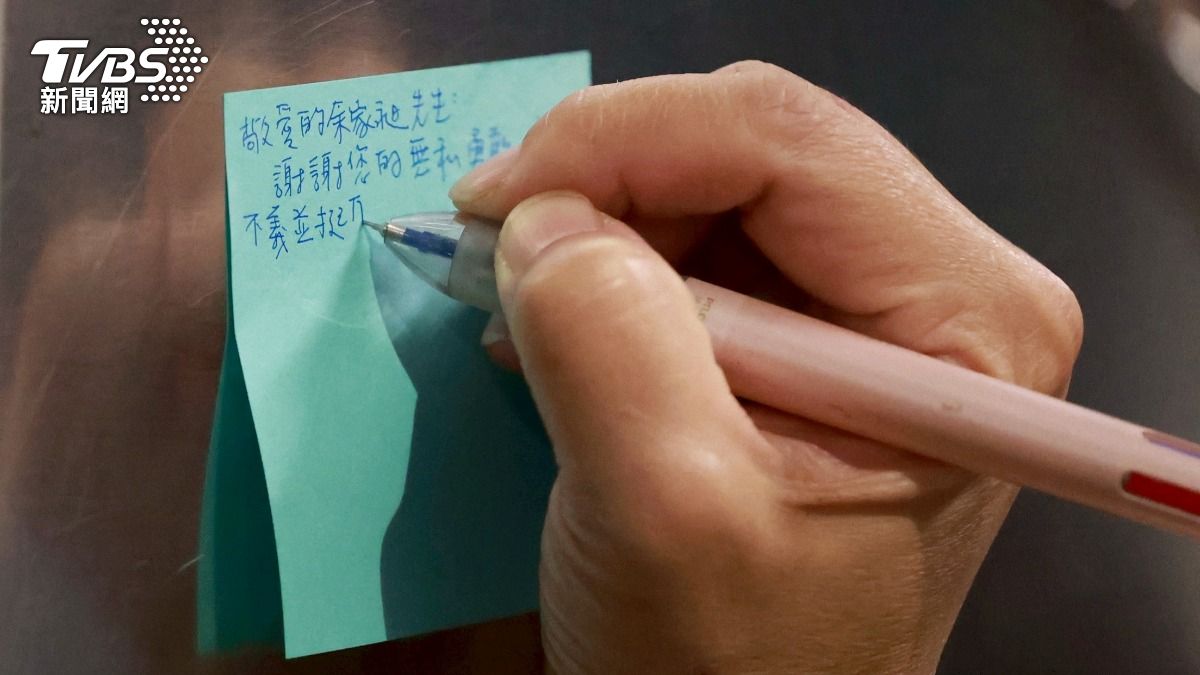 TVBS
新聞網
敬愛的余家昶先生:
謝謝您的無私勇敢
不義並挺